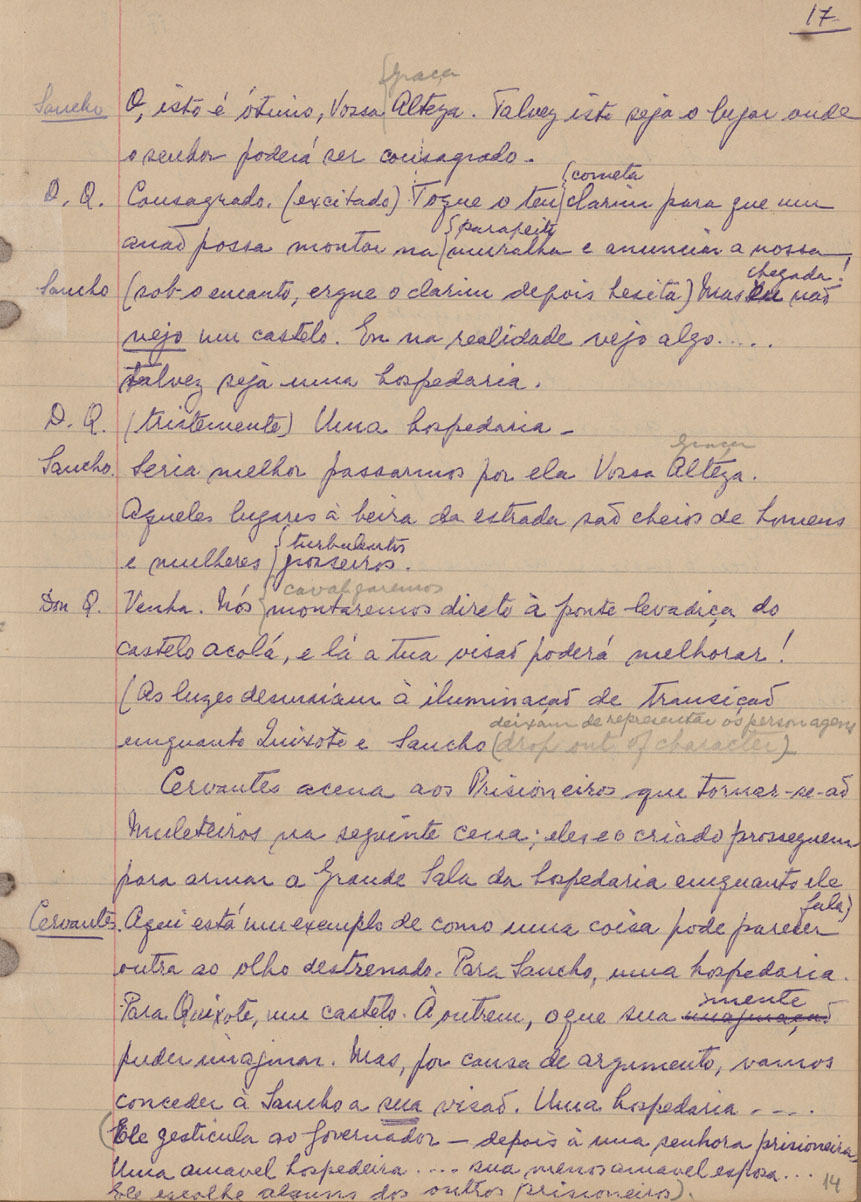 17
{Graça
Sancho O, isto é ótimo, Vossa Alteza. Talvez isto seja o lugar onde
o senhor poderá ser consagrado.
{corneta
D. Q. Consagrado. (excitado) Toque o teu clarim para que um
{parapeito
anaõ possa montar na muralha e anunciar a nossa
chegada!
Sancho (sob-o encanto, ergue o clarim depois hesita) Mas eu naõ
vejo um castelo. Eu na realidade vejo algo.....
talvez seja uma hospedaria.
D. Q. (tristemente) Uma hospedaria -
Graça
Sancho. Seria melhor passarmos por ela Vossa Alteza.
Aqueles lugares à beira da estrada saõ cheios de homens
{turbulentos
e mulheres grosseiros.
cavalgaremos
Don Q. Venha. Nós {montaremos direto à ponte-levadiça do
castelo acolá, e lá a tua visaõ poderá melhorar!
(As luzes desmaiam à iluminaçaõ de transiçaõ
deixam de representar os personagens
enquanto Quixote e Sancho (drop out of character)
Cervantes acena aos Prisioneiros que tornar-se-aõ
Muleteiros na seguinte cena; eles e o criado prosseguem
para armar a Grande Sala da hospedaria enquanto ele
fala)
Cervantes. Aqui está um exemplo de como uma coisa pode parecer
outra ao olho destrenado. Para Sancho, uma hospedaria.
mente
Para Quixote, um castelo. À outrem, o que sua imaginaçaõ
puder imaginar. Mas, por causa de argumento, vamos
conceder à Sancho a sua visaõ. Uma hospedaria ....
(Ele gesticula ao Governador — depois à uma senhora prisioneira
Uma amavel hospedeira .... sua menos amavel esposa...
Ele escolhe alguns dos outros prisioneiros).
14